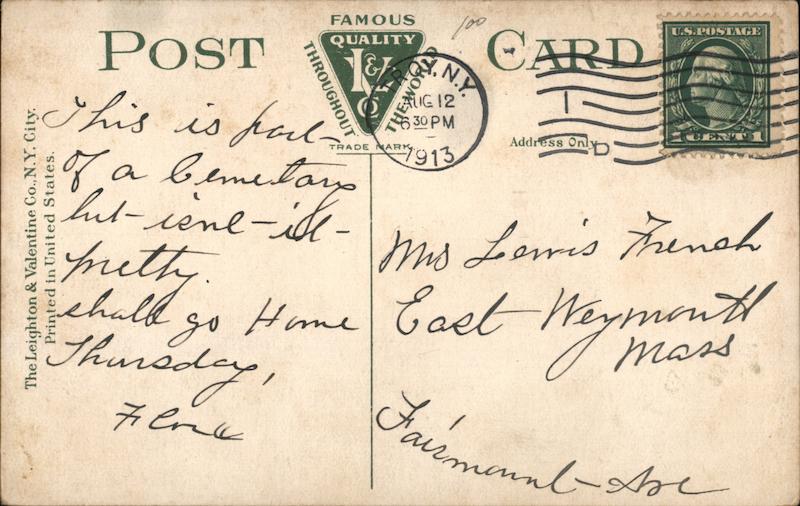 POST CARD
FAMOUS
QUALITY
L&V
Co
THROUGHOUT
THE WORLD
TRADE MARK
100
N.Y.
AUG 12
6 30 PM
1913
1
D
U.S. POSTAGE
1 CENT 1
Address Only
The Leighton & Valentine Co., N.Y. City.
Printed in United States.
This is part
of a Cemetary
but isnt it
pretty.
shall go Home
Thursday,
Flora
Mrs Lewis French
East Weymouth
Mass
Fairmount Ave